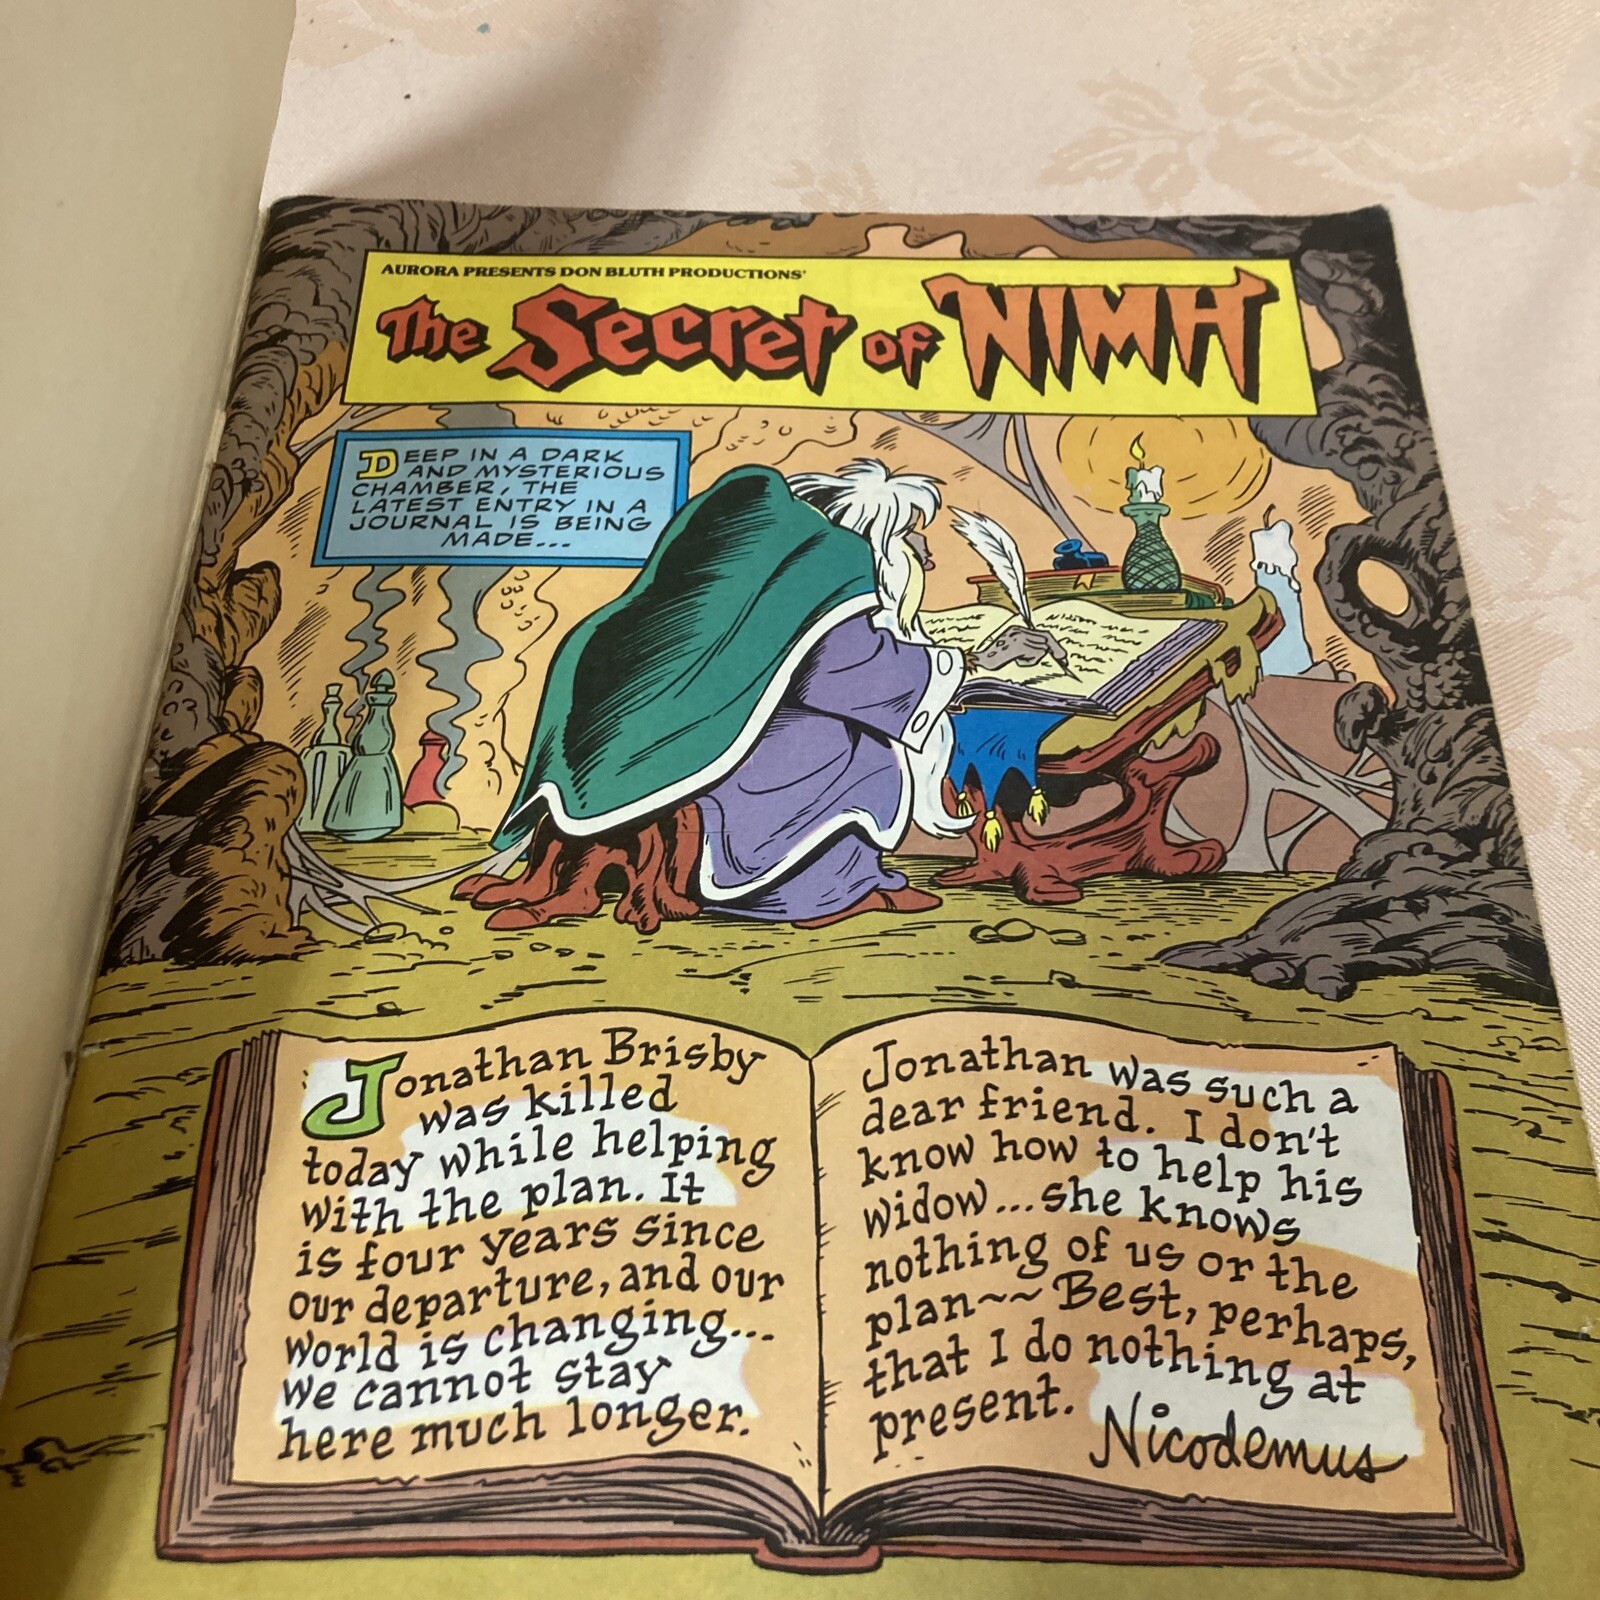 AURORA PRESENTS DON BLUTH PRODUCTIONS'
The Secret of NIMH
DEEP IN A DARK
AND MYSTERIOUS
CHAMBER, THE
LATEST ENTRY IN A
JOURNAL IS BEING
MADE...
Jonathan Brisby
was killed
today while helping
with the plan. It
is four years since
our departure, and our
world is changing...
we cannot stay
here much longer.
Jonathan was such a
dear friend. I don't
know how to help his
widow...she knows
nothing of us or the
plan~~Best, perhaps,
that I do nothing at
present.
Nicodemus